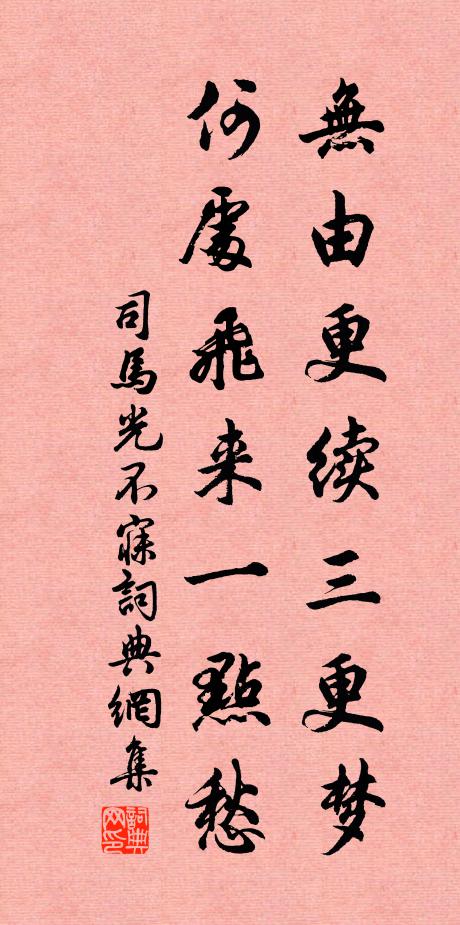 無由更续三更梦
何處飛来一點愁
司馬光不寐詞典網集
詞典网印